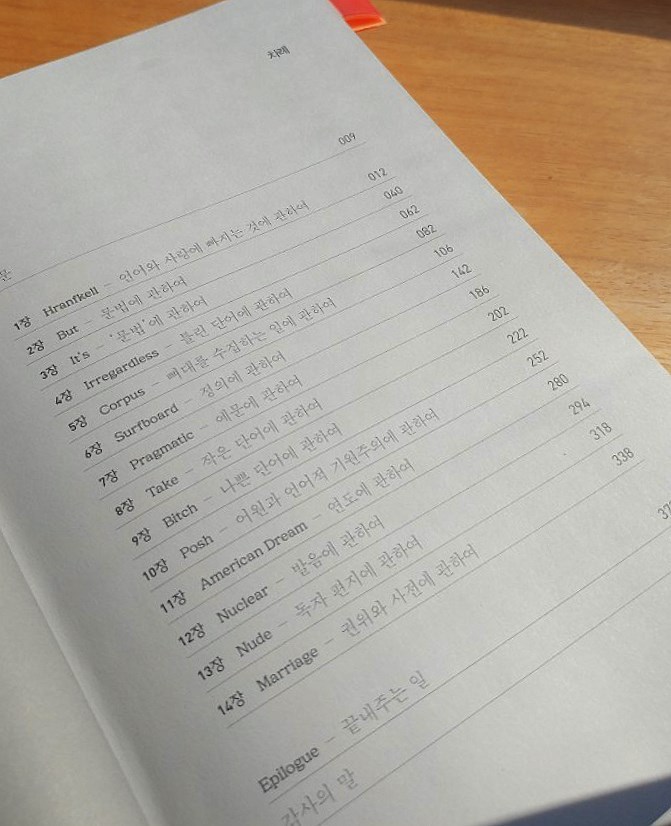 차례
문 009
1장 Hrafnkell – 언어와 사랑에 빠지는 것에 관하여 012
2장 But – 문법에 관하여 040
3장 It's – '문법'에 관하여 062
4장 Irregardless – 틀린 단어에 관하여 082
5장 Corpus – 뼈대를 수집하는 일에 관하여 106
6장 Surfboard – 정의에 관하여 142
7장 Pragmatic – 예문에 관하여 186
8장 Take – 작은 단어에 관하여 202
9장 Bitch – 나쁜 단어에 관하여 222
10장 Posh – 어원과 언어적 기원주의에 관하여 252
11장 American Dream – 연도에 관하여 280
12장 Nuclear – 발음에 관하여 294
13장 Nude – 독자 편지에 관하여 318
14장 Marriage – 권위와 사전에 관하여 338
Epilogue – 끝내주는 일
감사의 말